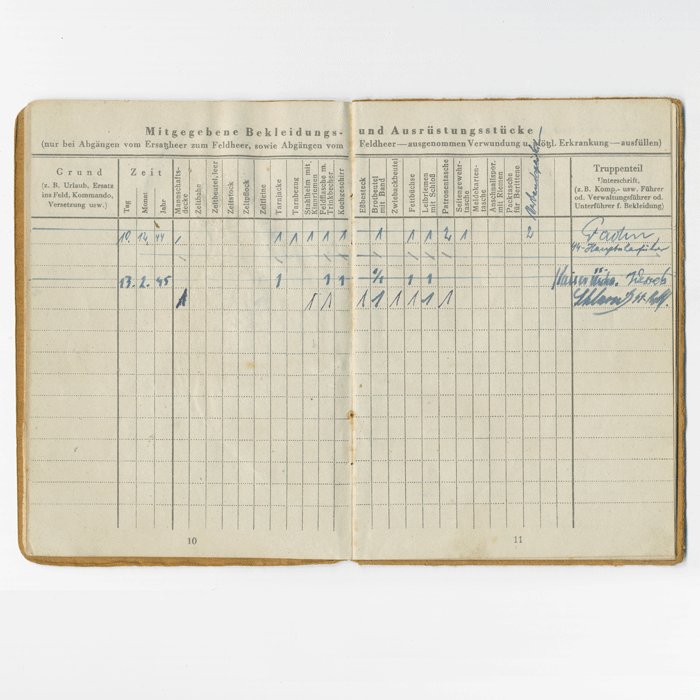 Mitgegebene Bekleidungs- und Ausrüstungsstücke
(nur bei Abgängen vom Ersatzheer zum Feldheer, sowie Abgängen vom Feldheer — ausgenommen Verwundung u. plötzl. Erkrankung — ausfüllen)
Grund
(z. B. Urlaub, Ersatz
ins Feld, Kommando,
Versetzung usw.)
Zeit
Tag
Monat
Jahr
Mannschafts-
decke
Zeltbahn
Zeltbeutel, leer
Zeltstock
Zeltpflock
Zeltleine
Tarnjacke
Tarnbezug
Stahlhelm mit
Kinnriemen
Feldflasche m.
Trinkbecher
Kochgeschirr
Eßbesteck
Brotbeutel
mit Band
Zwiebackbeutel
Fettbüchse
Leibriemen
mit Schloß
Patronentasche
Seitengewehr-
tasche
Meldekarten-
tasche
Anschnallspor.
mit Riemen
Packtasche
für Berittene
Truppenteil
Unterschrift,
(z. B. Komp.- usw. Führer
od. Verwaltungsführer od.
Unterführer f. Bekleidung)
12 44 1 1 1 1 1 1 1 1 1 2 1 2
1 1 1 1 1 1
13. 2. 45 1 1 1 1 1
1 1 1 1 1 1 1 1 1 1
10
11